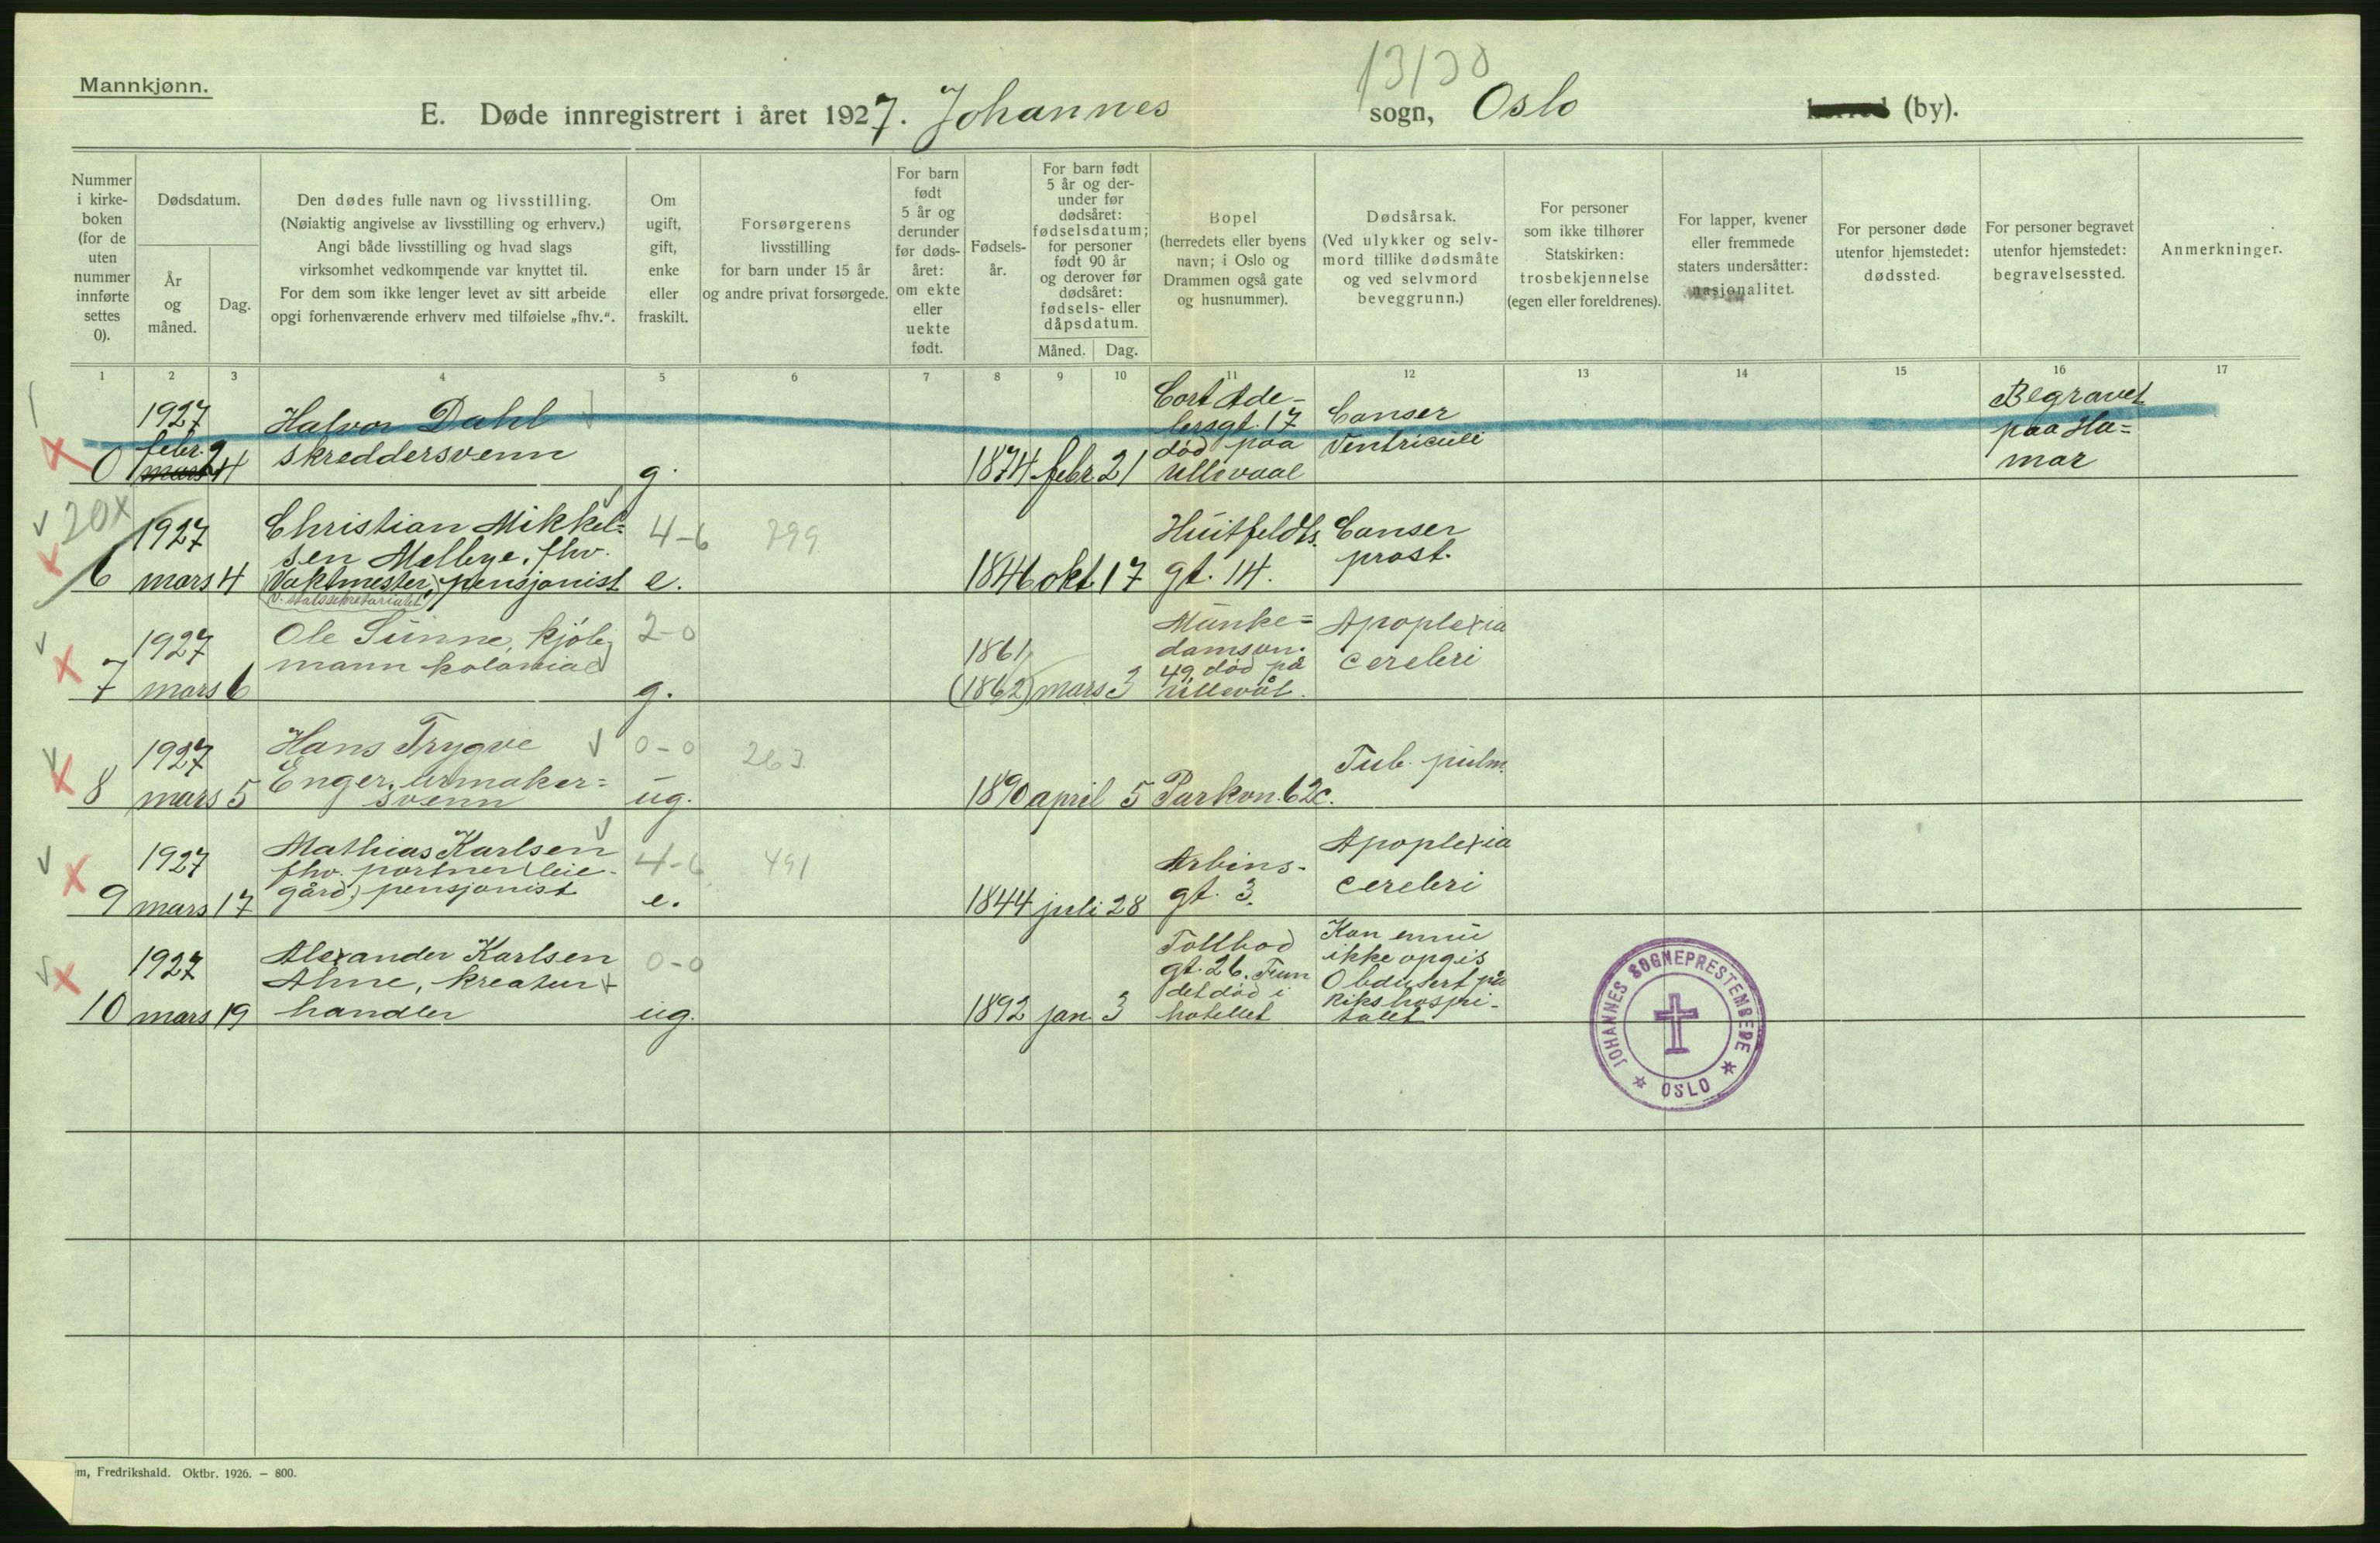 Mannkjønn.
13/30
E. Døde innregistrert i året 1927. Johannes sogn, Oslo (by).
Nummer i kirke-boken (for de uten nummer innførte settes 0).
Dødsdatum.
År og måned.
Dag.
Den dødes fulle navn og livsstilling.
(Nøiaktig angivelse av livsstilling og erhverv.)
Angi både livsstilling og hvad slags
virksomhet vedkommende var knyttet til.
For dem som ikke lenger levet av sitt arbeide
opgi forhenværende erhverv med tilføielse „fhv.“.
Om ugift, gift, enke eller fraskilt.
Forsørgerens
livsstilling
for barn under 15 år
og andre privat forsørgede.
For barn født 5 år og derunder før døds-året: om ekte eller uekte født.
Fødsels-år.
For barn født 5 år og der-under før dødsåret: fødselsdatum; for personer født 90 år og derover før dødsåret: fødsels- eller dåpsdatum.
Måned. Dag.
Bopel
(herredets eller byens
navn; i Oslo og
Drammen også gate
og husnummer).
Dødsårsak.
(Ved ulykker og selv-
mord tillike dødsmåte
og ved selvmord
beveggrunn.)
For personer
som ikke tilhører
Statskirken:
trosbekjennelse
(egen eller foreldrenes).
For lapper, kvener
eller fremmede
staters undersåtter:
nasjonalitet.
For personer døde
utenfor hjemstedet:
dødssted.
For personer begravet
utenfor hjemstedet:
begravelsessted.
Anmerkninger.
1 2 3 4 5 6 7 8 9 10 11 12 13 14 15 16 17
0 1927 febr. mars 24
Halvor Dahl
skreddersvenn
g.
1874 febr. 21
Cort Ade-
lersgt. 17
død paa
Ullevaal
Canser
Ventriculi
Begravet
paa Ha=
mar
20x
6 1927 mars 4
Christian Mikkel=
sen Melbye, fhv.
Vaktmester, pensjonist
(v. statssekretariatet)
4-6
e.
299
1846 okt. 17
Huitfeldts.
gt. 14.
Canser
prost.
7 1927 mars 6
Ole Sunne, kjøb-
mann kolonial
2-0
g.
1861
(1862) mars 3
Munke=
damsvn.
49, død på
Ullevål.
Apoplexia
cerebri
8 1927 mars 5
Hans Trygve
Enger, urmaker=
svenn
0-0
ug.
263
1890 april 5
Parkvn. 62c.
Tub. pulm.
9 1927 mars 17
Mathias Karlsen
fhv. portner (leie-
gård) pensjonist
4-6
e.
491
1844 juli 28
Arbins-
gt. 3.
Apoplexia
cerebri
10 1927 mars 19
Alexander Karlsen
Alme, kreatur
handler
0-0
ug.
1892 jan. 3
Tollbod
gt. 26. Fun
det død i
hotellet
Kan ennu
ikke opgis
Obdusert på
Rikshospi-
talet
JOHANNES SOGNEPRESTEMBEDE
OSLO
m, Fredrikshald. Oktbr. 1926. — 800.